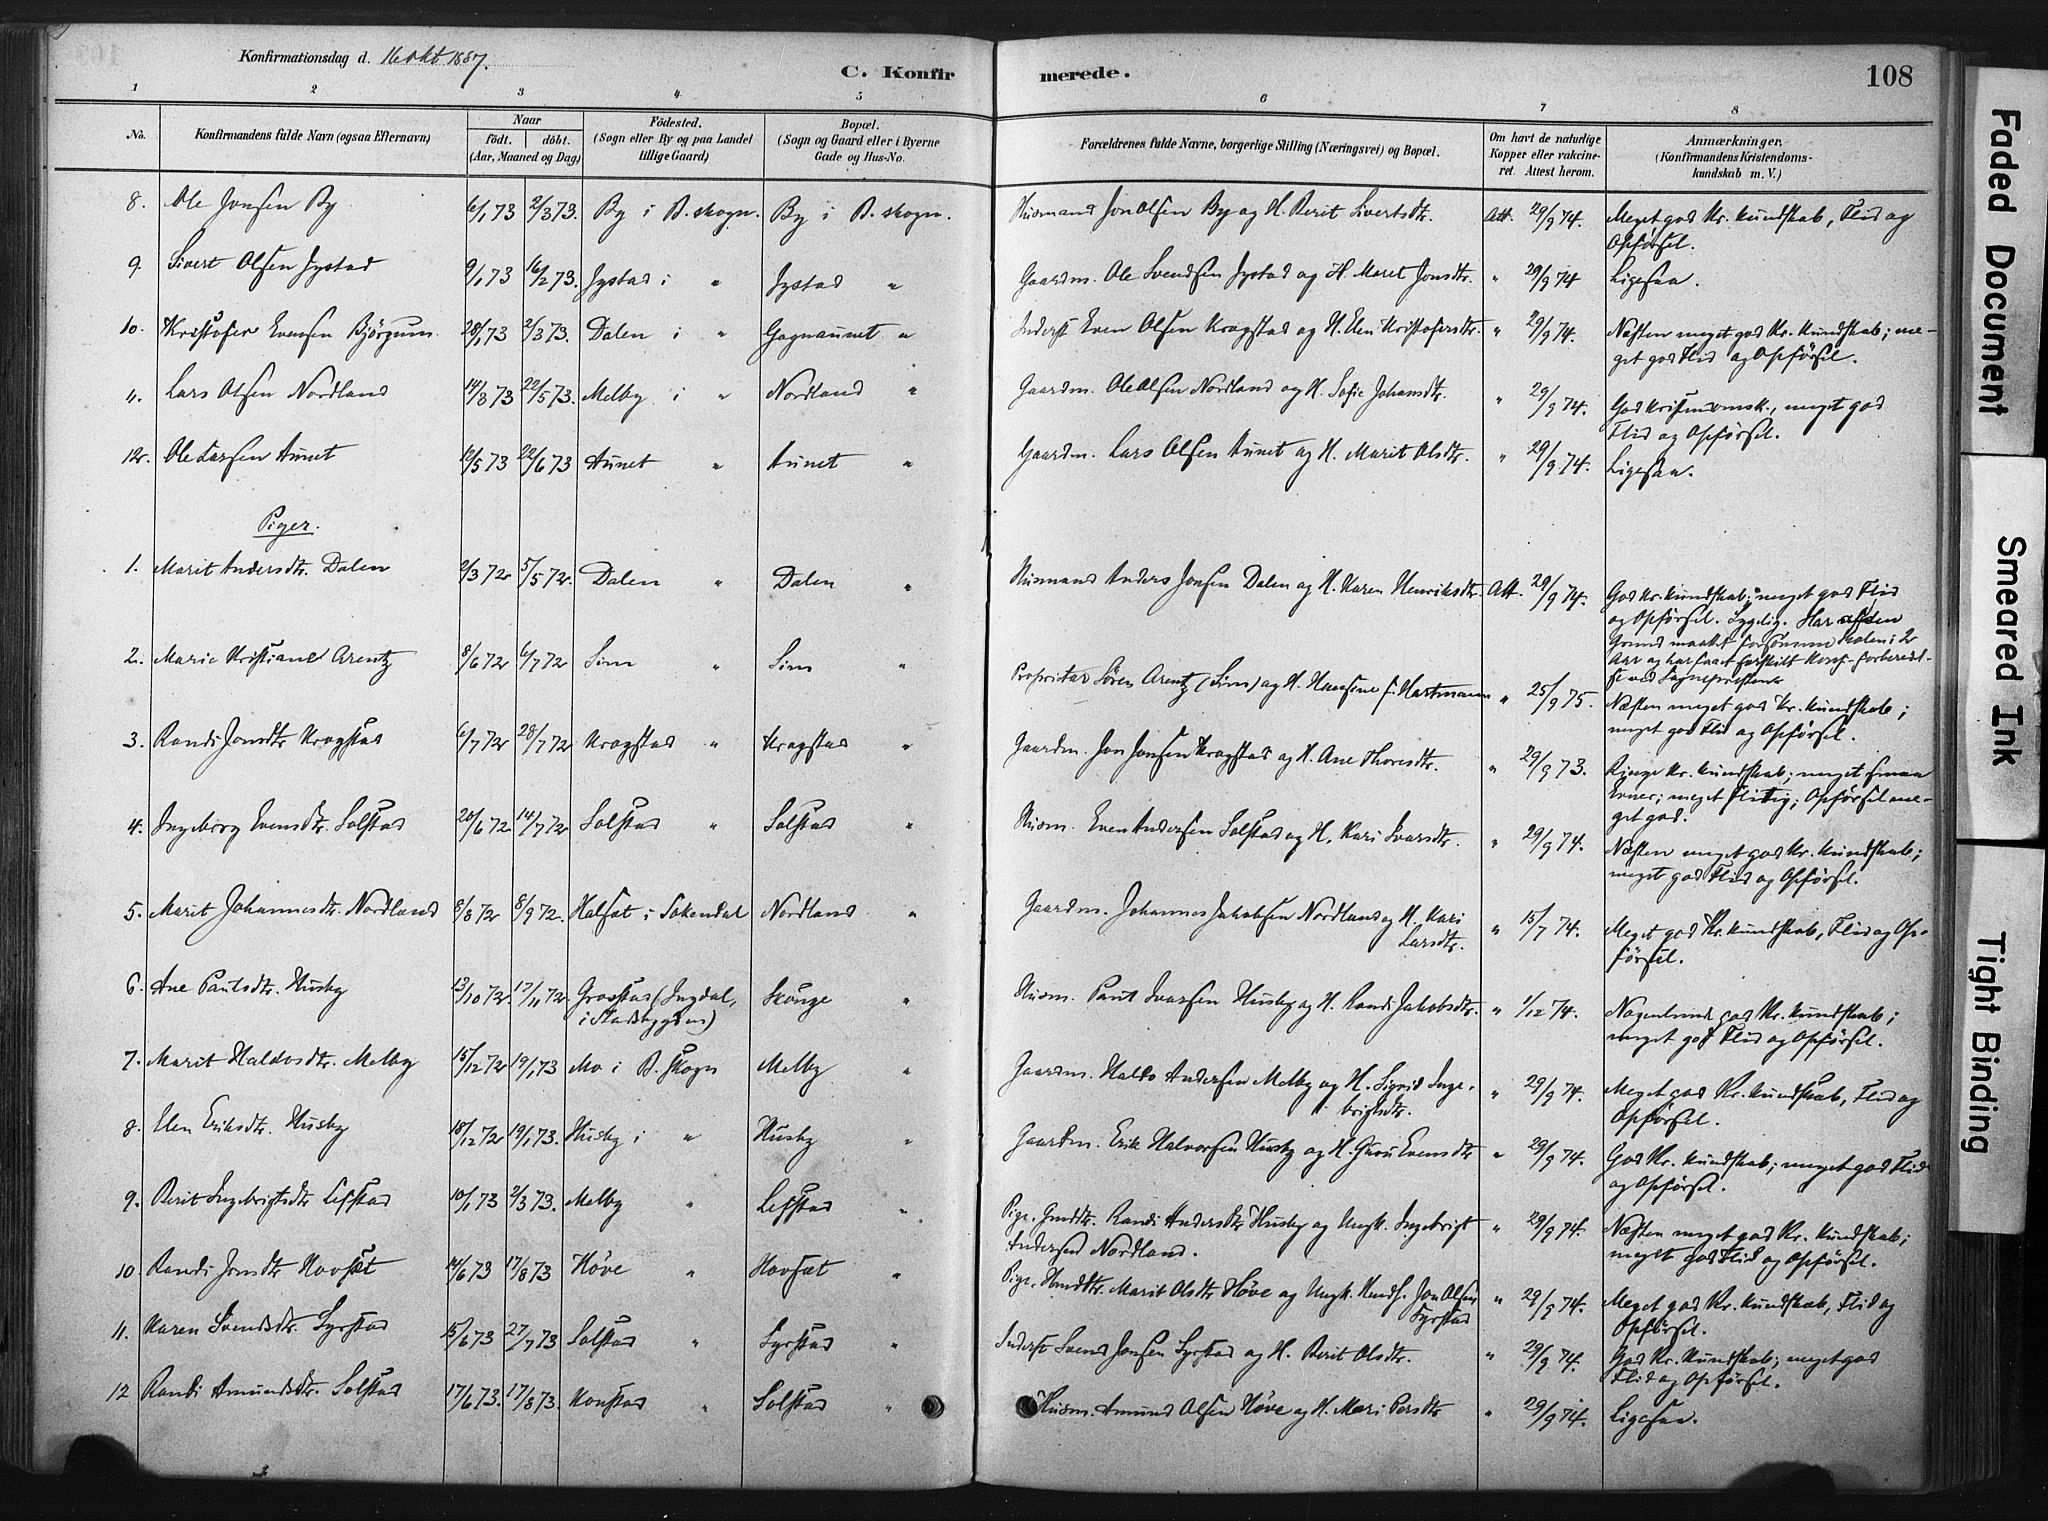 Konfirmationsdag d. 16 okt 1887.
C. Konfir merede. 108
1 2 3 4 5 6 7 8
No. Konfirmandens fulde Navn (ogsaa Efternavn)
Naar
födt. döbt.
(Aar, Maaned og Dag)
Födested.
(Sogn eller By og paa Landet
tillige Gaard)
Bopæl.
(Sogn og Gaard eller i Byerne
Gade og Hus-No.
Forældrenes fulde Navne, borgerlige Stilling (Næringsvei) og Bopæl.
Om havt de naturlige
Kopper eller vakcine-
ret. Attest herom.
Anmærkninger,
(Konfirmandens Kristendoms-
kundskab m. V.)
8. Ole Jonsen By 6/1 73 2/3 73. By i B. skogn. By i B. skogn. Husmand Jon Olsen By og H. Berit Sivertsdtr. Att. 29/9 74. Meget god Kr. kundskab, Flid og
Opførsel.
9. Sivert Olsen Jystad 9/1 73 16/2 73. Jystad i " Jystad " Gaardm. Ole Svendsen Jystad og H. Maret Jonsdtr. " 29/9 74 Ligesaa.
10. Kristofer Evensen Björgum 28/1 73 2/3 73. Dalen i " Gagnaunet " Inderst Even Olsen Kragstad og H. Elen Kristofersdtr. " 29/9 74. Næsten meget god Kr. kundskab; me-
get god Flid og Opførsel.
11. Lars Olsen Nordland 14/3 73 22/5 73. Melby i " Nordland " Gaardm. Ole Olsen Nordland og H. Sofie Johansdtr. " 29/9 74. God kristendomsk., meget god
Flid og Opførsel.
12. Ole Larsen Aunet 12/5 73 22/6 73 Aunet " Aunet " Gaardm. Lars Olsen Aunet og H. Marit Olsdtr. " 29/9 74. Ligesaa.
Piger.
1. Marit Andersdtr. Dalen 2/3 72 5/5 72. Dalen " Dalen " Husmand Anders Jonsen Dalen og H. Karen Henriksdtr. Att. 29/9 74. God Kr. kundskab; meget god Flid
og Opførsel. Sygelig. Har af den
Grund maattet forsømme Skolen i 2
Aar og har faaet særskilt Konf.-forberedel-
se ved Sognepresten
2. Marie Kristiane Arentz 8/6 72 6/7 72 Sim " Sim " Proprietær Sören Arentz (Sim) og H. Hansine f. Hartmann " 25/9 75. Næsten meget god Kr. kundskab;
meget god Flid og Opførsel.
3. Randi Jonsdtr. Kragstad 6/7 72 28/7 72 Kragstad " Kragstad " Gaardm. Jon Jonsen Kragstad og H. Ane Thoresdtr. " 29/9 73. Ringe Kr. kundskab; meget smaa
Evner; meget flittig; Opførsel me-
get god.
4. Ingeborg Evensdtr. Solstad 20/6 72 14/7 72 Solstad " Solstad " Husm. Even Andersen Solstad og H. Kari Ivarsdtr. " 29/9 74. Næsten meget god Kr. kundskab;
meget god Flid og Opførsel.
5. Marit Johannesdtr. Nordland 8/8 72 8/9 72. Halset i Soknedal Nordland " Gaardm. Johannes Jakobsen Nordland og H. Kari
Larsdtr. " 15/7 74. Meget god Kr. kundskab, Flid og Op-
førsel.
6. Ane Paulsdtr. Husby 13/10 72. 17/11 72. Grøstad (Ingdal,
i Stadsbygden) Skauge " Husm. Paul Ivarsen Husby og H. Randi Jakobsdtr. " 1/12 74. Nogenlunde god Kr. kundskab;
meget god Flid og Opførsel.
7. Marit Haldosdtr. Melby 15/12 72 19/1 73 Mo i B. Skogn Melby " Gaardm. Haldo Andersen Melby og H. Sigrid Inge-
brigtsdtr. " 29/9 74. Meget god Kr. kundskab, Flid og
Opførsel.
8. Elen Eriksdtr. Husby 18/12 72 19/1 73. Husby i " Husby " Gaardm. Erik Halvorsen Husby og H. Guru Evensdtr " 29/9 74. God Kr. kundskab; meget god Flid
og Opførsel.
9. Berit Ingebrigtsdtr. Lefstad 10/1 73 2/3 73. Melby " Lefstad " Pige, Gmdtr. Randi Andersdtr. Husby og Ungk. Ingebrigt
Andersen Nordland. " 29/9 74. Næsten meget god Kr. kundskab;
meget god Flid og Opførsel.
10 Randi Jonsdtr. Hovset 14/6 73 17/8 73 Höve " Hovsæt " Pige, Hmdtr. Marit Olsdtr. Höve og Ungk. Husmds. Jon Olsen
Syrstad " 29/9 74. Meget god Kr. kundskab, Flid og
Opførsel.
11. Karen Svendsdtr. Syrstad 15/6 73 27/7 73 Solstad " Syrstad " Inderst Svend Jonsen Syrstad og H. Berit Olsdtr. " 29/9 74. God Kr. kundskab; meget god
Flid og Opførsel.
12 Randi Amundsdtr. Solstad 17/6 73. 17/8 73. Konstad " Solstad " Husm. Amund Olsen Höve og H. Mari Persdtr " 29/9 74. Ligesaa.
Faded Document
Smeared Ink
Tight Binding